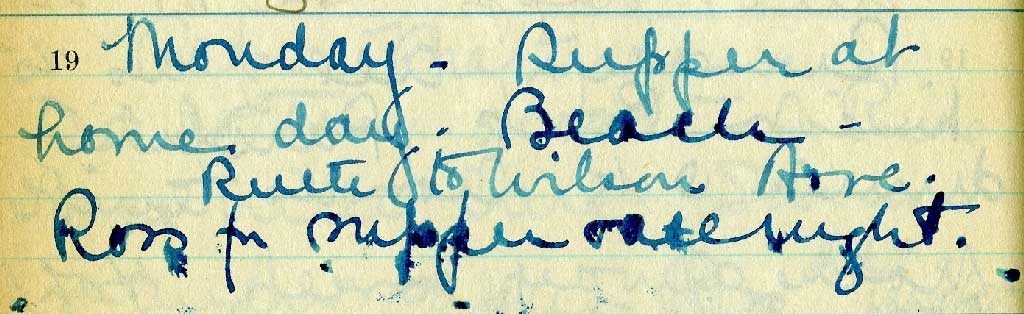 19 Monday - Supper at
home day. Beach -
Ruth to Wilson Ave.
Ross for supper & all night.